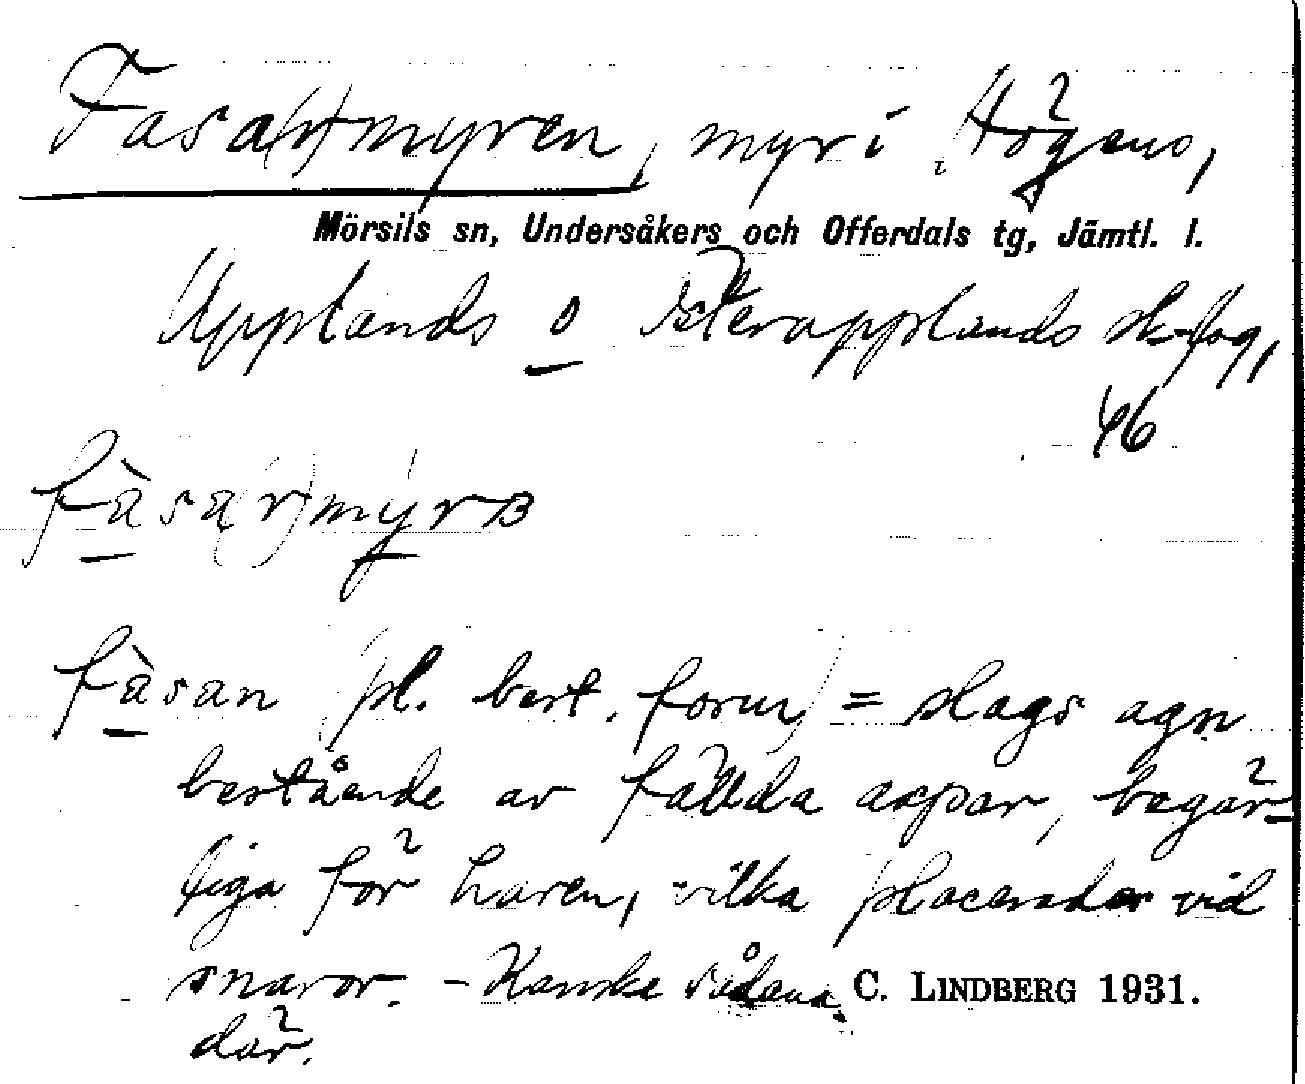 Fasa(r)myren, myr i Högens,
Mörsils sn, Undersåkers och Offerdals tg, Jämtl. l.
Upplands o Österupplands sk-lag,
46
fàsa(r)mýrɜ
fàsan (pl. best. form) = slags agn
bestående av fällda aspar, begär-
liga för haren, vilka placerades vid
snaror. – Kanske sådana
där.
C. LINDBERG 1931.